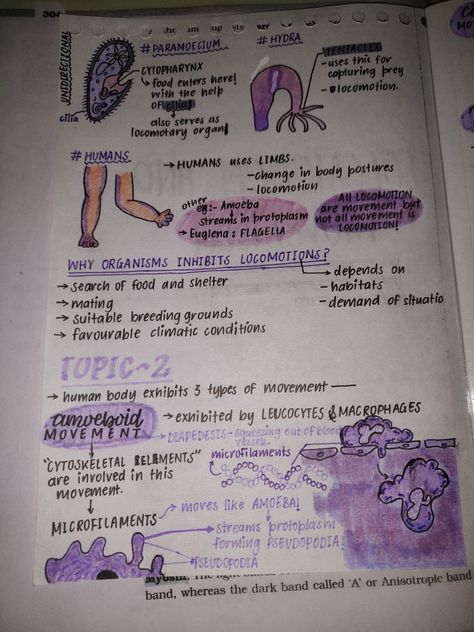 304
UNIDIRECTIONAL
# PARAMOECIUM
CYTOPHARYNX
↳ food enters here!
with the help
of cilia!
also serves as
locomotary organ!
cilia
# HYDRA
TENTACLES
- uses this for
capturing prey
- locomotion.
# HUMANS
→ HUMANS uses LIMBS.
- change in body postures
- locomotion
other
eg:- Amoeba
streams in protoplasm
→ Euglena : FLAGELLA
All LOCOMOTION
are movement but
not all movement is
LOCOMOTION!
WHY ORGANISMS INHIBITS LOCOMOTIONS?
→ search of food and shelter
→ mating
→ suitable breeding grounds
→ favourable climatic conditions
→ depends on
- habitats
- demand of situatio
TOPIC~2
→ human body exhibits 3 types of movement —
amoeboid
MOVEMENT
→ exhibited by LEUCOCYTES & MACROPHAGES
→ DIAPEDESIS - squeezing out of blood
vessels.
"CYTOSKELETAL ELEMENTS"
are involved in this
movement.
microfilaments
MICROFILAMENTS
→ moves like AMOEBA!
→ streams protoplasm
forming PSEUDOPODIA!
PSEUDOPODIA
Myosin. The light
band, whereas the dark band called 'A' or Anisotropic band